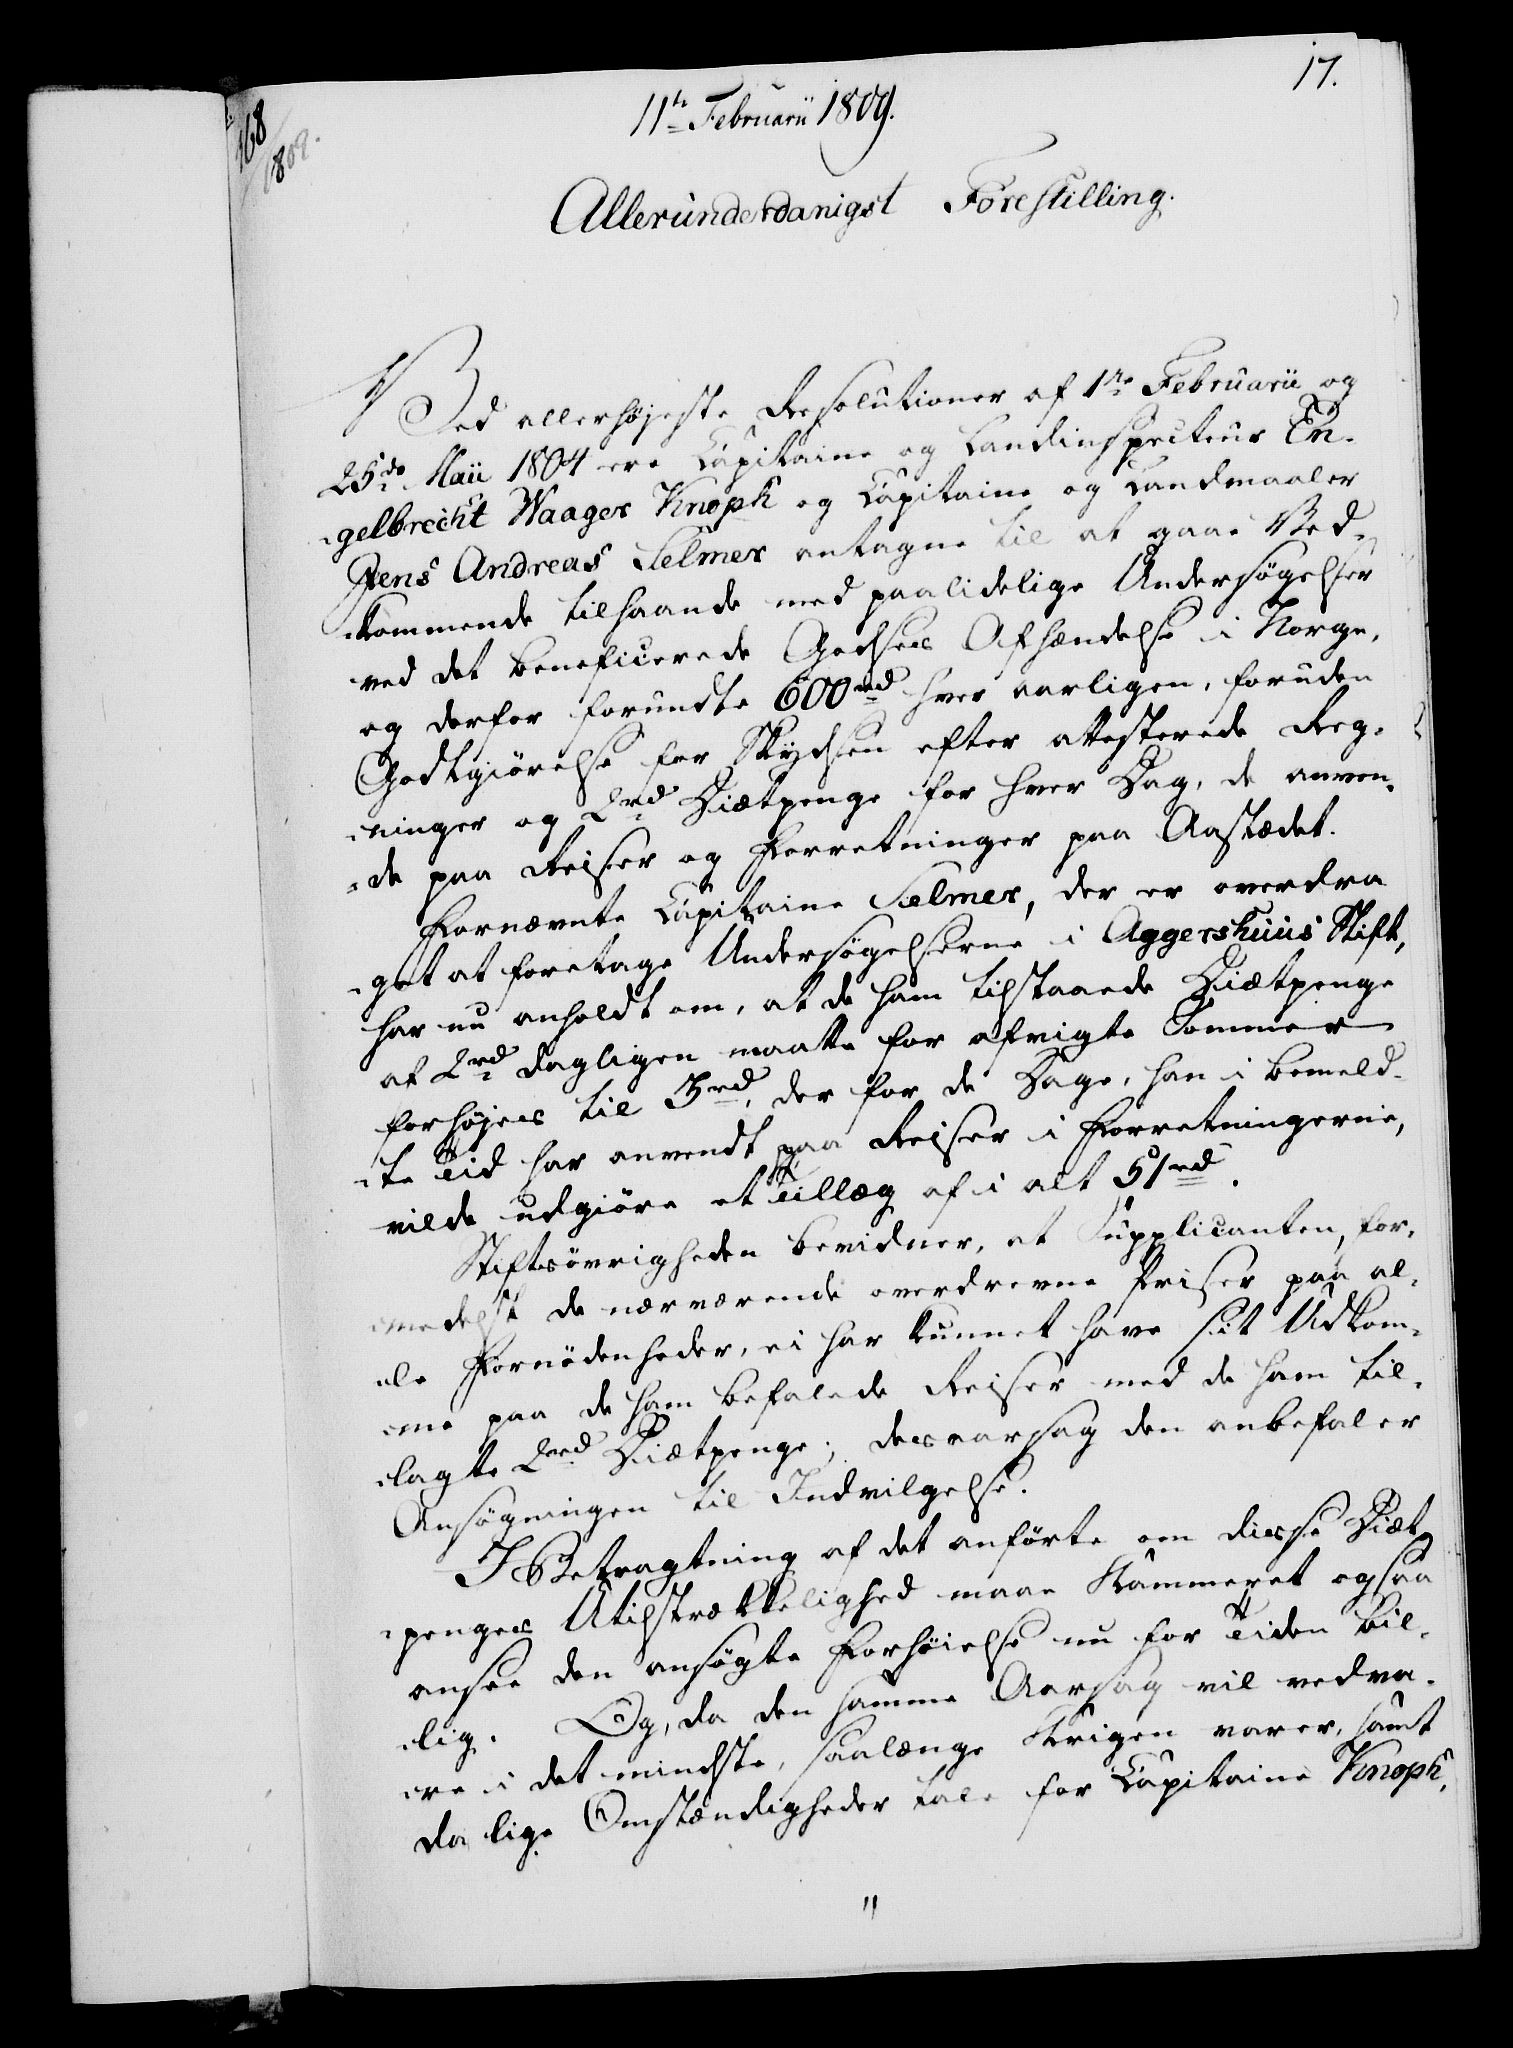 17.
11te Februarii 1809.
168/1809.
Allerunderdanigst Forestilling.
Ved allerhøjeste Resolutioner af 1ste Februarii og
25de Maii 1804 ere Capitaine og Landinspecteur En-
gelbrecht Waager Knoph og Capitaine og Landmaaler
Jens Andreas Selmer antagne til at gaae Ved-
kommende tilhaande med paalidelige Undersøgelser
ved det beneficerede Godses Afhændelse i Norge,
og derfor forundte 600 rd hver aarligen, foruden
Godtgiörelse for Skydsen efter attesterede Reg-
ninger og 2 rd Diætpenge for hver Dag, de anven-
de paa Reiser og Forretninger paa Aastædet.
Fornævnte Capitaine Selmer, der er overdra
get at foretage Undersøgelserne i Aggershuus Stift,
har nu anholdt om, at de ham tilstaaede Diætpenge
af 2 rd dagligen maatte for afvigte Sommer
forhøjes til 3 rd, der for de Dage, han i bemeld-
te Tid har anvendt paa Reiser i Forretningerne,
vilde udgiöre et Tillæg af i alt 51 rd.
Stiftsövrigheden bevidner, at Supplicanten, for-
medelst de nærværende overdrevne Priser paa al-
le Fornödenheder, ei har kunnet have sit Udkom-
me paa de ham befalede Reiser med de ham til-
lagte 2 rd Diætpenge; desaarsag den anbefaler
Ansøgningen til Indvilgelse.
I Betragtning af det anförte om disse Diæt
penges Utilstrækkelighed maae Kammeret ogsaa
ansee den ansøgte Forhöielse nu for Tiden bil-
lig. Og, da den samme Aarsag vil vedva-
re i det mindste, saalænge Krigen varer, samt
da lige Omstændigheder tale for Capitaine Knoph,
"